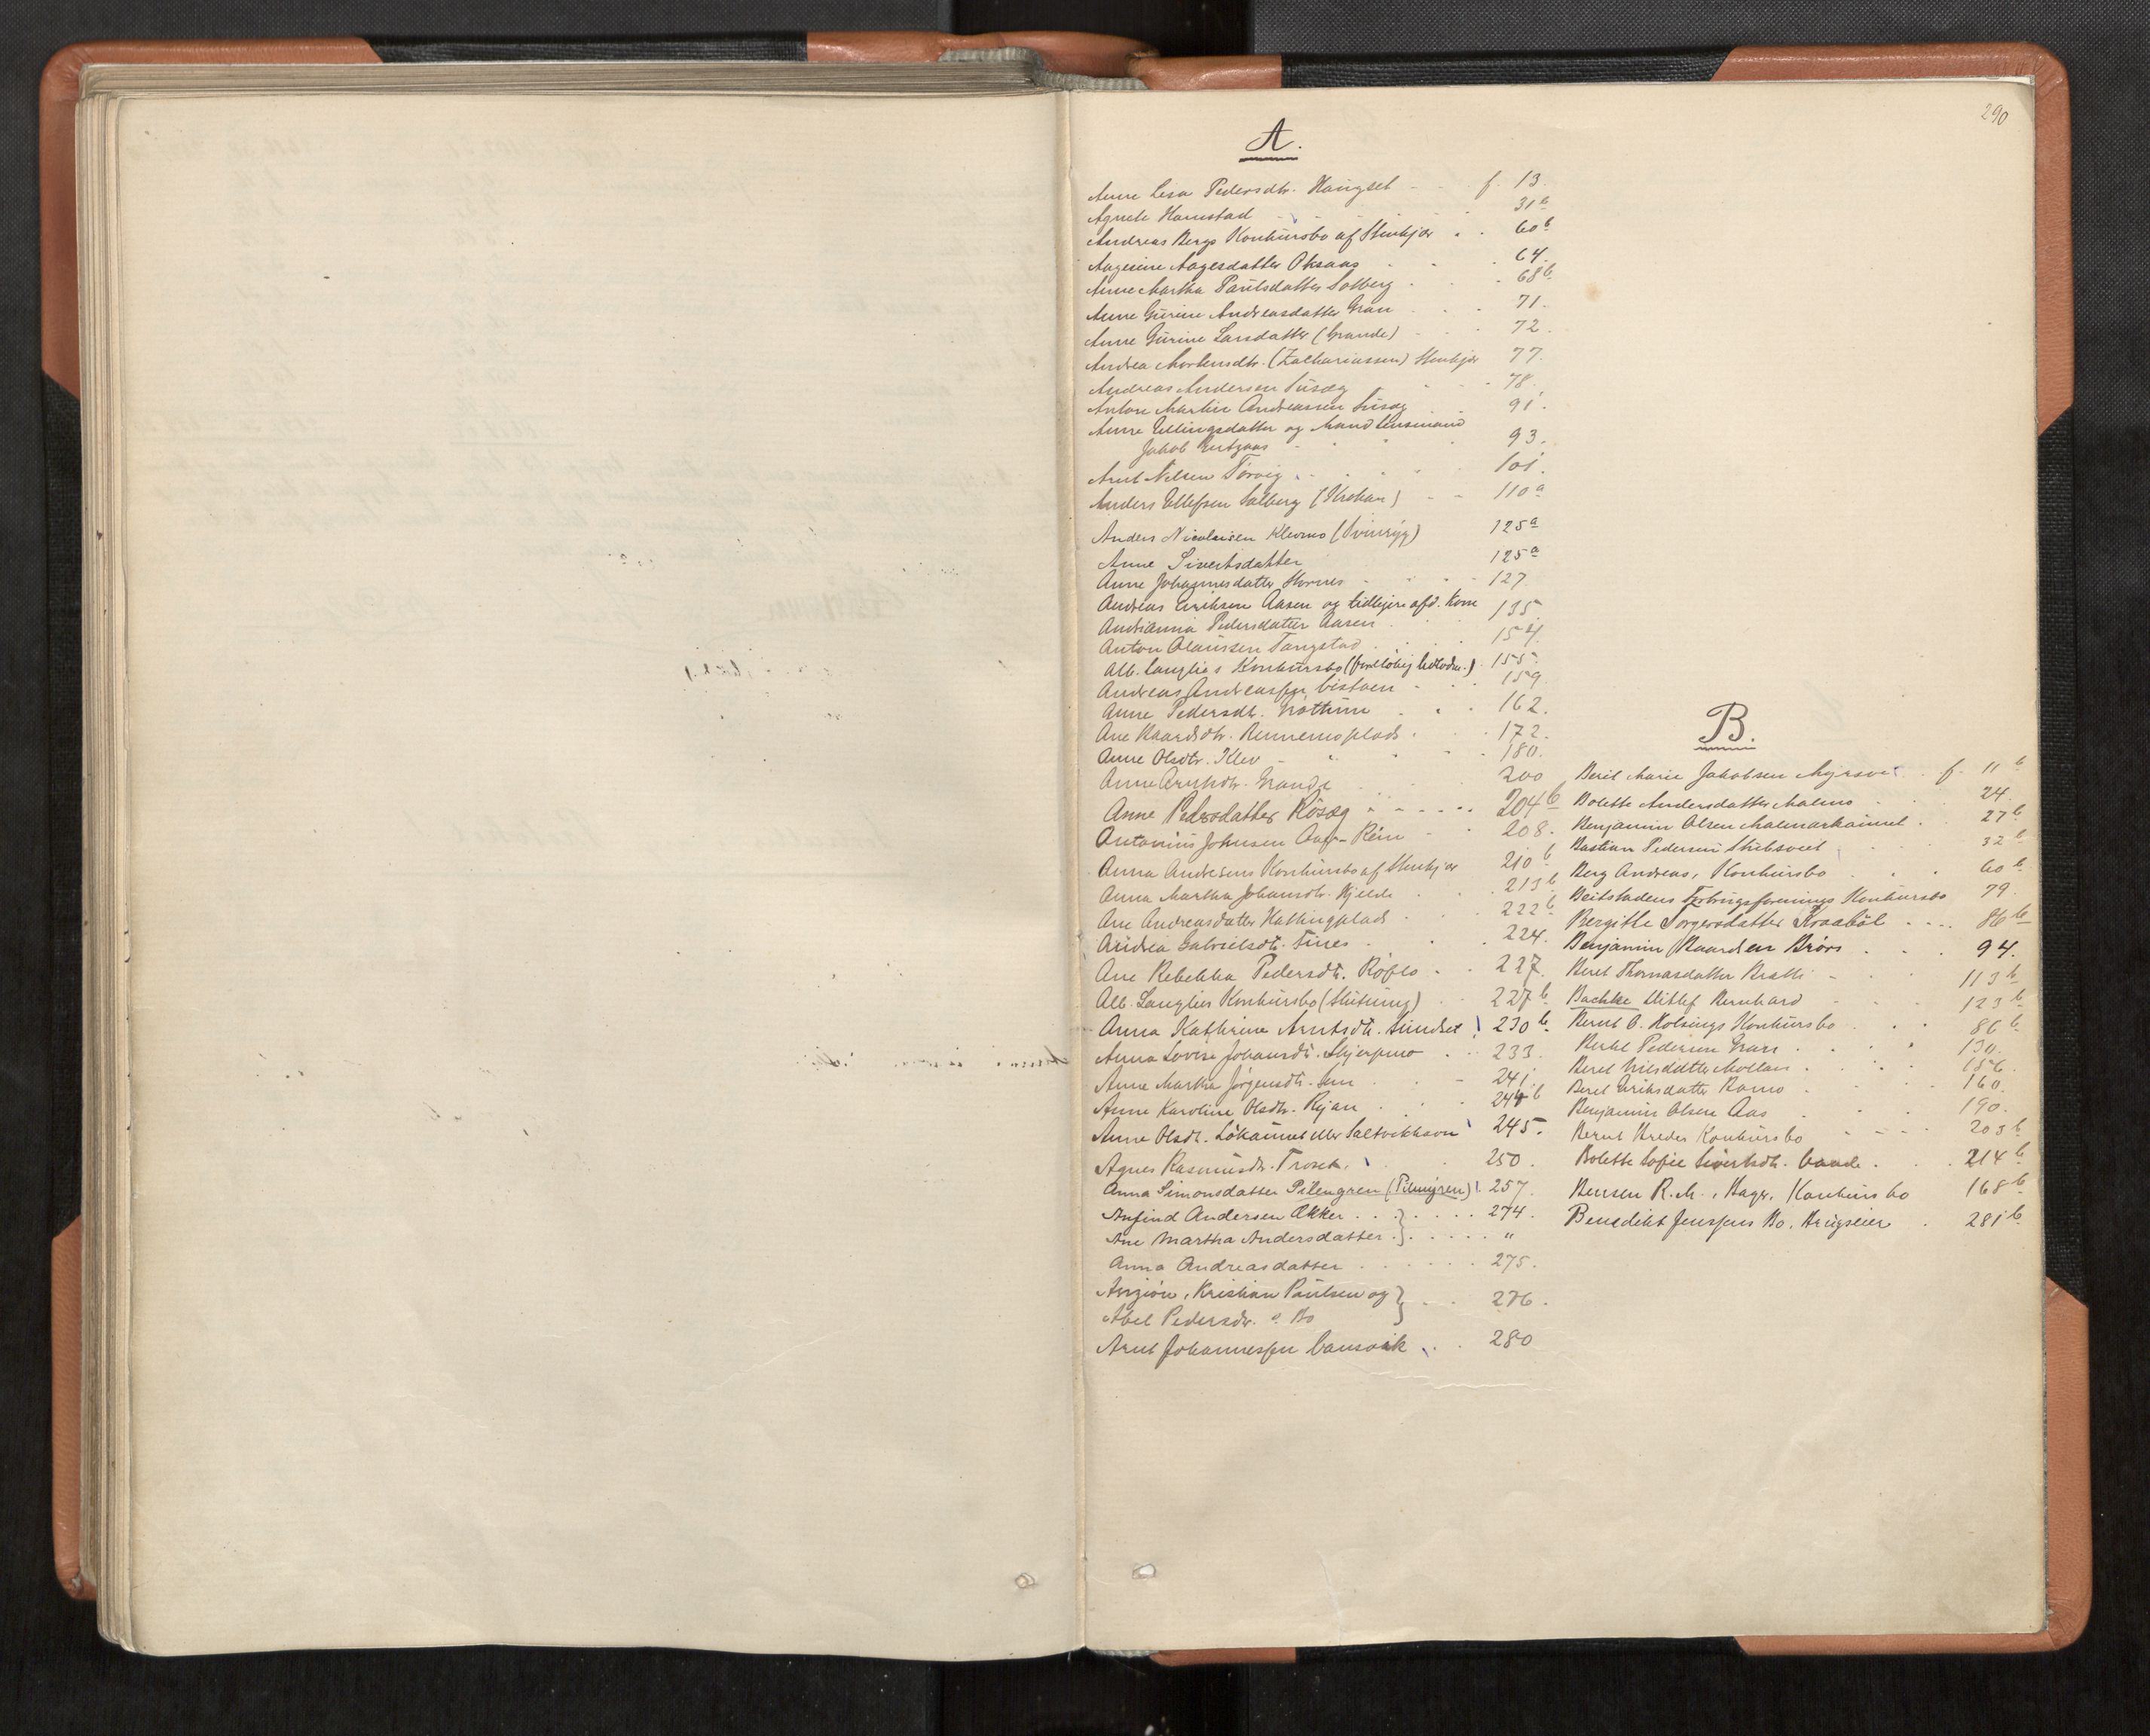 290
A.
Anne Lisa Pedersdtr. Haugset f. 13.
Agnete Hamstad 31b
Andreas Bergs Konkursbo af Stenkjær 60b
Aagesine Aagesdatter Oksaas 64.
Anne Martha Paulsdatter Solberg 68b
Anne Gurine Andreasdatter Gran 71.
Anne Gurine Larsdatter (Grande) 72.
Andrea Mortensdtr. (Zachariassen) Stenkjær 77.
Andreas Andersen Susæg 78.
Antore Martin Andreassen Susæg 91.
Anne Ellingsdatter og Mand
Jakob 93.
Arnt Nilsen Torvig 101.
Anders Ellefsen Salberg 110a
Anders Nicolaisen Klevmo (Svinryg) 125a
Anne Sivertsdatter 125a
Anne Johannesdatter Hornes 127
Andreas Eriksen Aasen og tidligere afd. Kone 135
Andrianna Pedersdatter Aasen
Anton Olaussen Tangstad 154.
Alb. Langlies Konkursbo 155.
Andreas Andreassen 159
Anne Pedersdtr. 162.
Ane Baardsdtr. Rennemoplads 172.
Anne Olsdtr. Klev 180.
Anne Arntsdtr. Grande 200
Anne Pedersdatter Rösæg 204b
Antonius Johnsen Aaf-Rein 208.
Anna Andresens Konkursbo af Stenkjær 210b
Anna Martha Johansdtr. Kjelda 213b
Ane Andreasdatter Hallingplads 222b
Andrea Gabrielsdtr. Tines 224.
Ane Rebekka Pedersdtr. Röflo 227.
Alb. Langlies Konkursbo (Slutning) 227b
Anna Kathrine Arntsdtr. Sundset 230b
Anna Lovise Johansdtr. Skjerpmo 233.
Anne Martha Jörgensdtr. Sem 241.
Anne Karoline Olsdtr. Ryan 244b
Anne Olsdtr. Lökaunet eller Saltvikhavn 245.
Agnes Rasmusdtr. Troset 250.
Anna Simonsdatter Pilengren (Pilmyren) 257.
Anfind Andersen Ækker 274.
Ane Martha Andersdatter "
Anna Andreasdatter 275.
Kristian Paulsen og
Abel Pedersdtr. s. Bo 276.
Arnt Johannessen 280
B.
Berit Marie Jakobsen f. 11b
Bolette Andersdatter Malmo 24.
Benjamin Olsen Malmarkaunet 27b
Bastian Pedersen 32b
Berg Andreas, Konkursbo 60b
Beitstadens Forbrugsforenings Konkursbo 79.
Bergitte Torgersdatter Kraaböl 86b
Benjamin Baardsen Brörs 94.
Beret Thomasdatter Bratli 113b
Bachke Ditlef Bernhard 123b
Bernt O. Holsings Konkursbo 86b
Bertel Pedersen Gran 130.
Beret Nilsdatter Mollan 156.
Beret Eriksdatter Ramo 160.
Benjamin Olsen Aas 190.
Bernt Bredes Konkursbo 203b
Bolette Sofie Sivertsdtr. 214b
Bensen R. M., Bager, Konkursbo 168b
Benedikt Jenssens Bo, Brugseier 281b